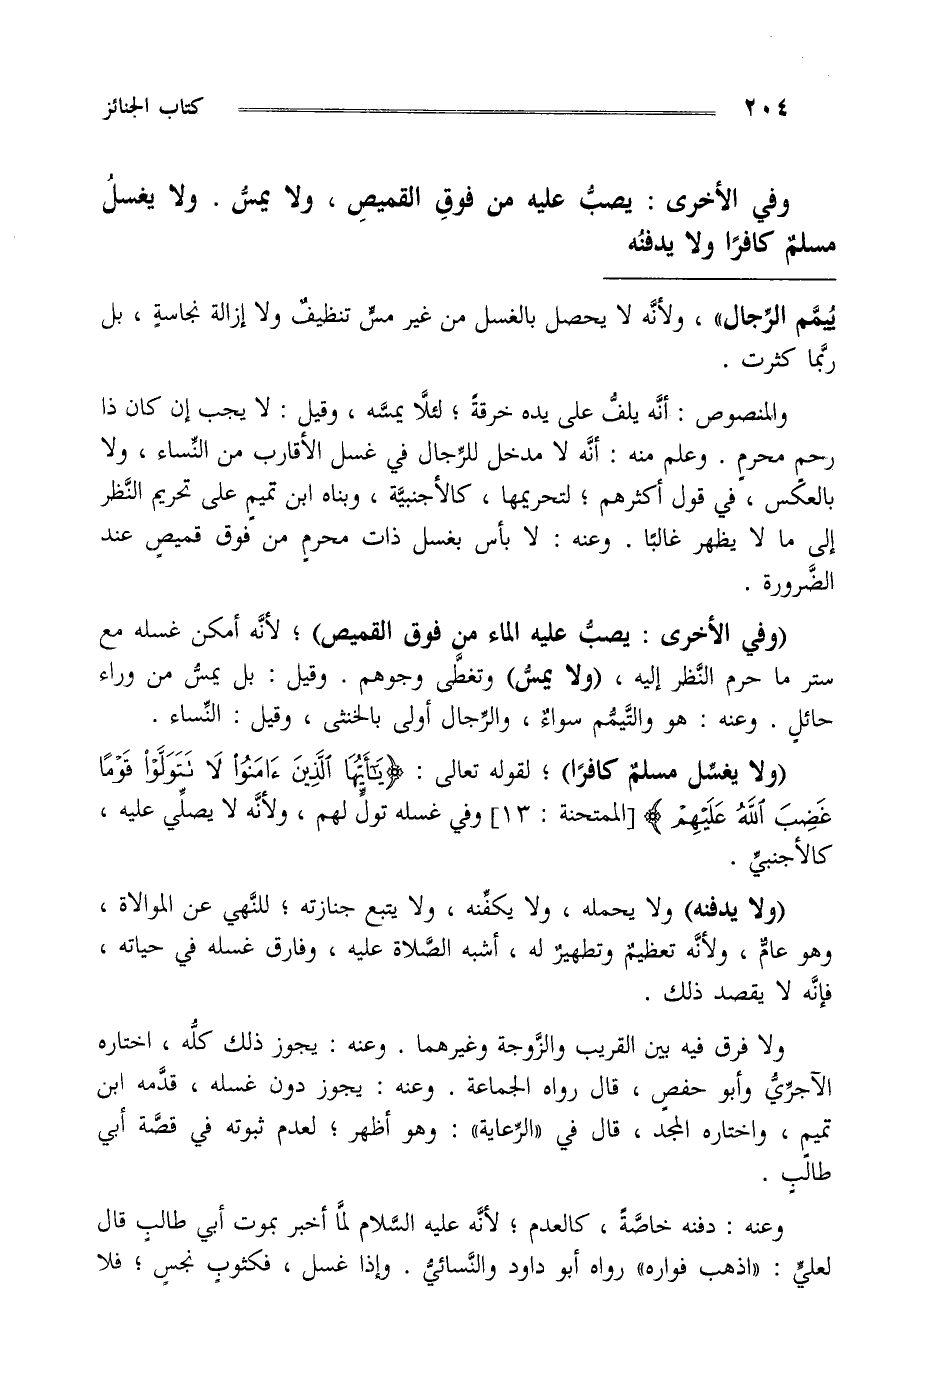 ٢٠٤ كتاب الجنائز
وفي الأخرى : يصبُّ عليه من فوقِ القميصِ ، ولا يمسُّ . ولا يغسلُ
مسلمٌ كافرًا ولا يدفنُه
يُيمَّم الرِّجال» ، ولأنَّه لا يحصل بالغسل من غير مسٍّ تنظيفٌ ولا إزالة نجاسةٍ ، بل
ربَّما كثرت .
والمنصوص : أنَّه يلفُّ على يده خرقةً ؛ لئلَّا يمسَّه ، وقيل : لا يجب إن كان ذا
رحمٍ محرمٍ . وعلم منه : أنَّه لا مدخل للرِّجال في غسل الأقارب من النِّساء ، ولا
بالعكس ، في قول أكثرهم ؛ لتحريمها ، كالأجنبيَّة ، وبناه ابن تميمٍ على تحريم النَّظر
إلى ما لا يظهر غالبًا . وعنه : لا بأس بغسل ذات محرمٍ من فوق قميصٍ عند
الضَّرورة .
(وفي الأخرى : يصبُّ عليه الماء من فوق القميص) ؛ لأنَّه أمكن غسله مع
ستر ما حرم النَّظر إليه ، (ولا يمسُّ) وتغطَّى وجوهم . وقيل : بل يمسُّ من وراء
حائلٍ . وعنه : هو والتَّيمُّم سواءٌ ، والرِّجال أولى بالخنثى ، وقيل : النِّساء .
(ولا يغسِّل مسلمٌ كافرًا) ؛ لقوله تعالى : ﴿يَٰٓأَيُّهَا ٱلَّذِينَ ءَامَنُواْ لَا تَتَوَلَّوۡاْ قَوۡمًا
غَضِبَ ٱللَّهُ عَلَيۡهِمۡ﴾ [الممتحنة : ١٣] وفي غسله تولٍّ لهم ، ولأنَّه لا يصلِّي عليه ،
كالأجنبيِّ .
(ولا يدفنه) ولا يحمله ، ولا يكفِّنه ، ولا يتبع جنازته ؛ للنَّهي عن الموالاة ،
وهو عامٌّ ، ولأنَّه تعظيمٌ وتطهيرٌ له ، أشبه الصَّلاة عليه ، وفارق غسله في حياته ،
فإنَّه لا يقصد ذلك .
ولا فرق فيه بين القريب والزَّوجة وغيرهما . وعنه : يجوز ذلك كلُّه ، اختاره
الآجرِّيُّ وأبو حفصٍ ، قال رواه الجماعة . وعنه : يجوز دون غسله ، قدَّمه ابن
تميمٍ ، واختاره المجد ، قال في «الرِّعاية» : وهو أظهر ؛ لعدم ثبوته في قصَّة أبي
طالبٍ .
وعنه : دفنه خاصَّةً ، كالعدم ؛ لأنَّه عليه السَّلام لمَّا أخبر بموت أبي طالبٍ قال
لعليٍّ : «اذهب فواره» رواه أبو داود والنَّسائيُّ . وإذا غسل ، فكثوبٍ نجسٍ ؛ فلا